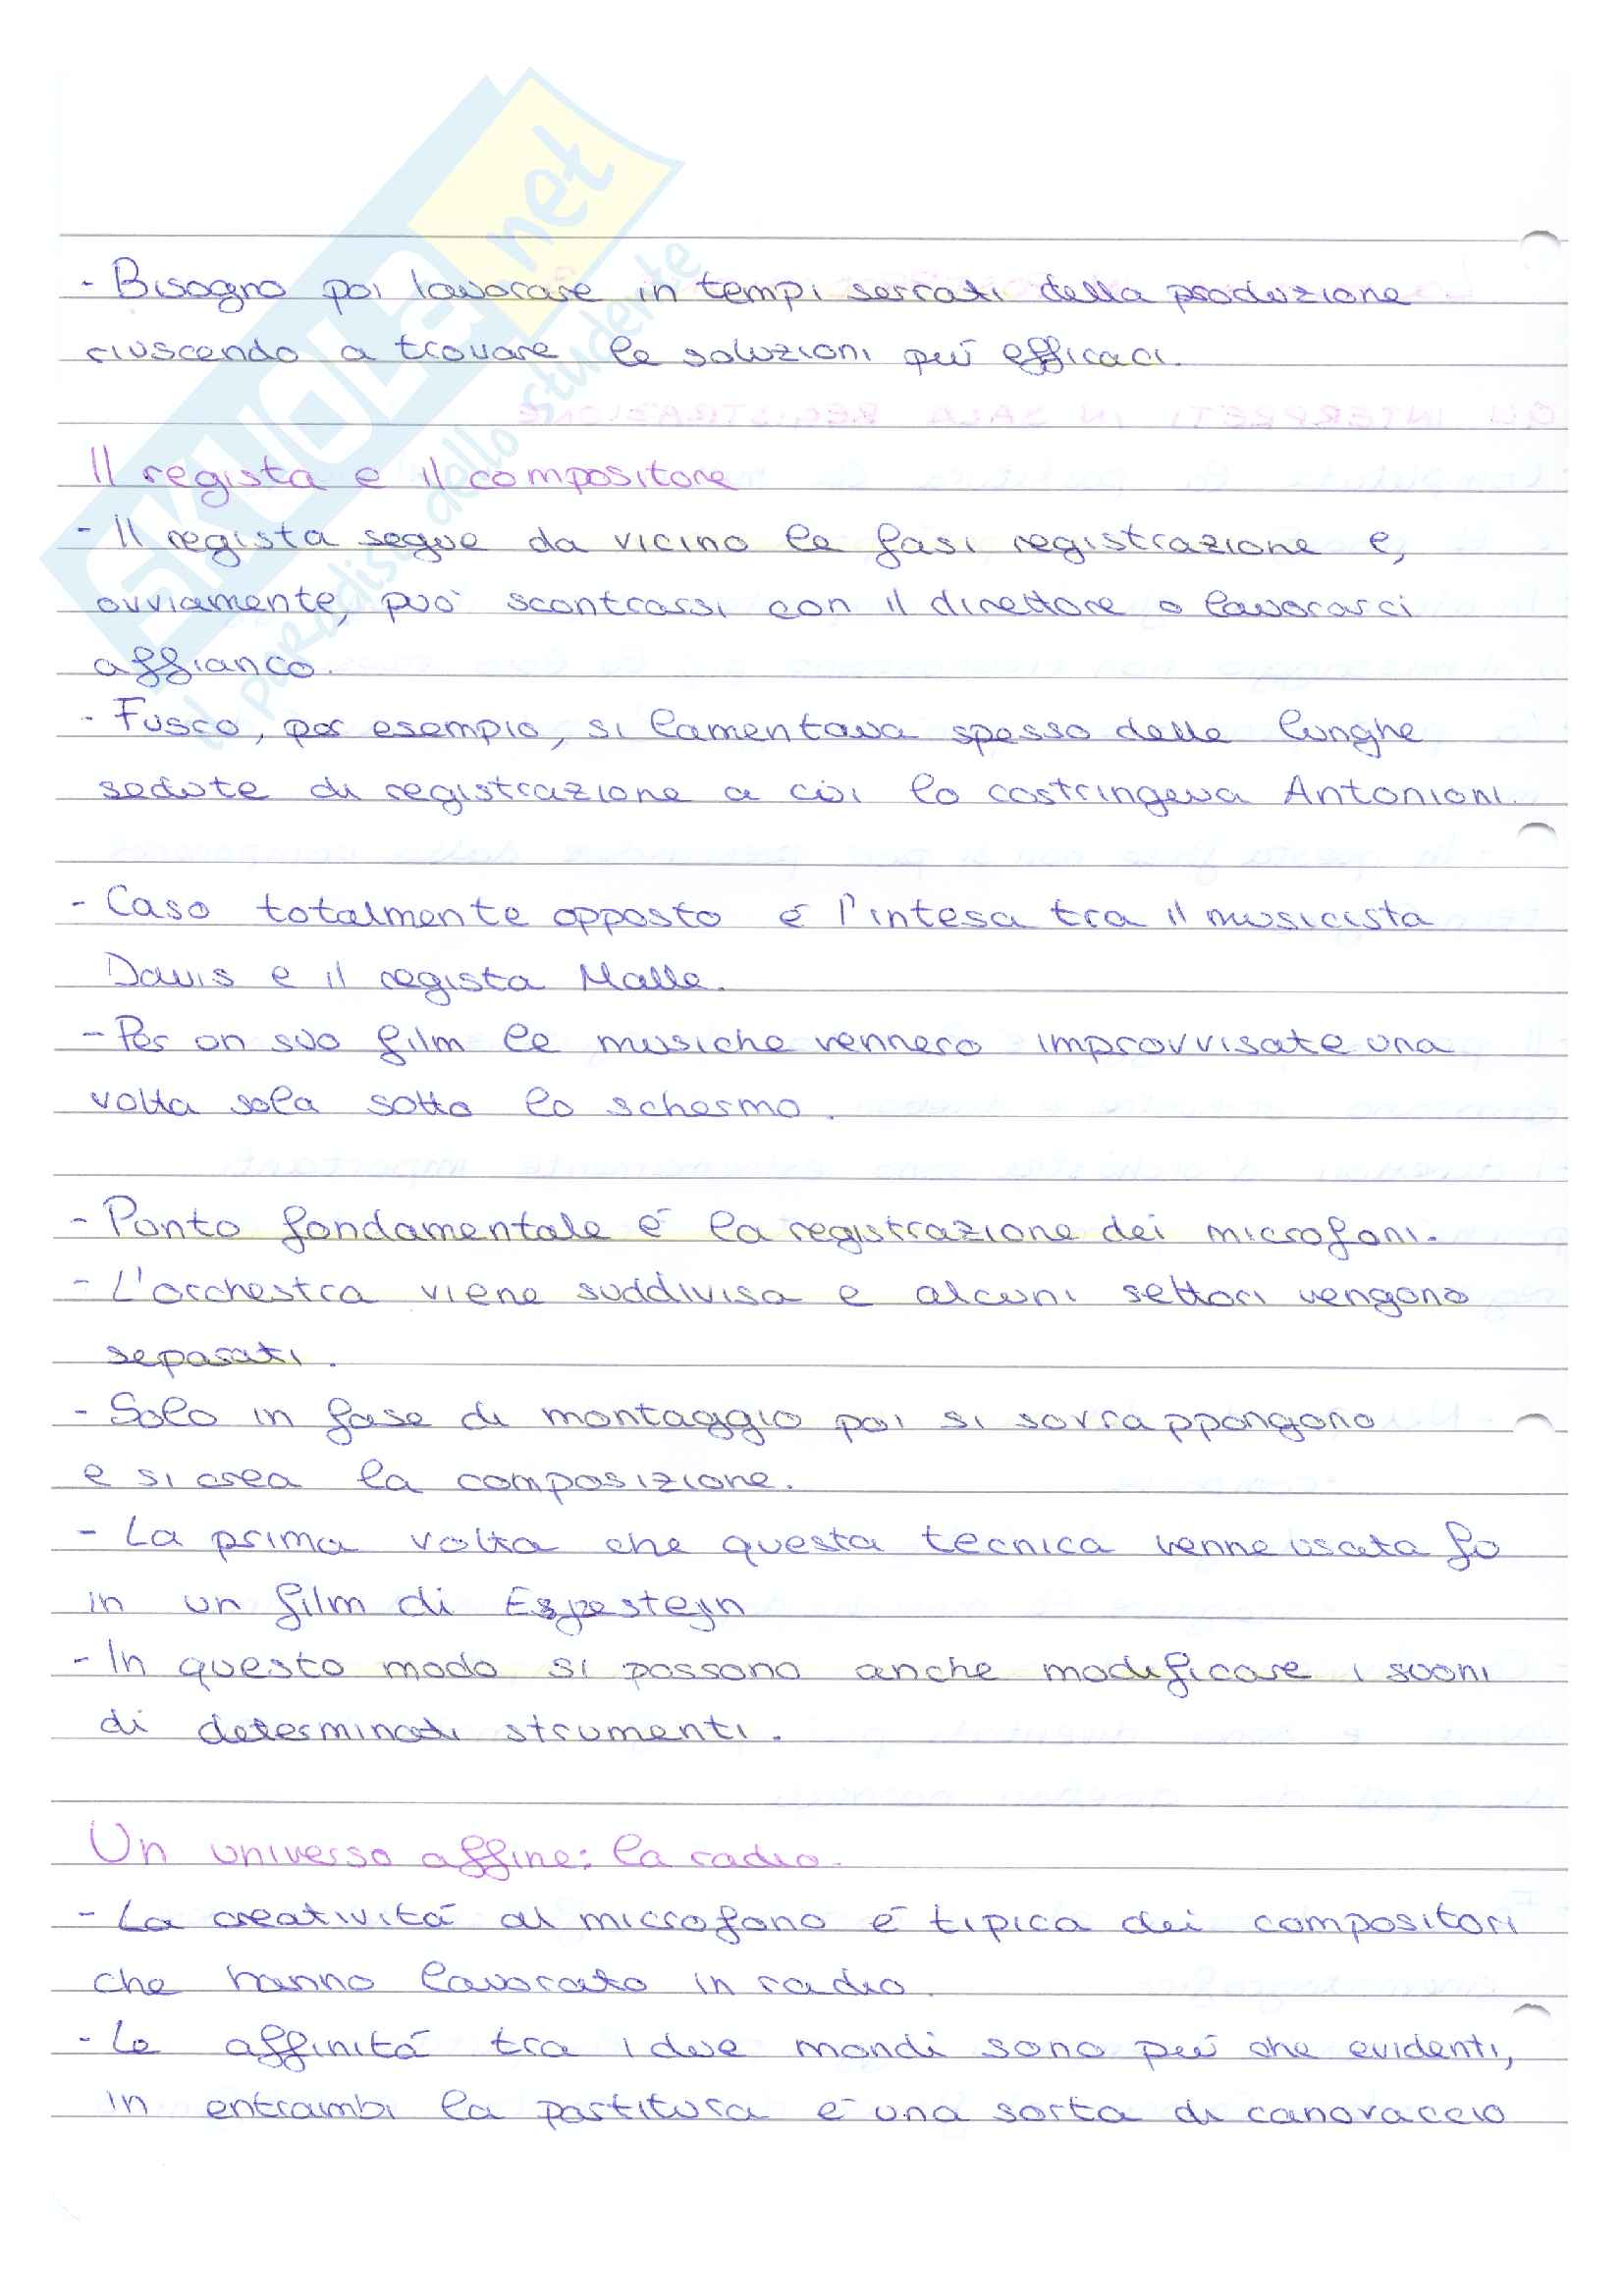 SKUOLA.net
il paradiso dello studente
- Bisogno poi lavorare in tempi serrati della produzione
riuscendo a trovare le soluzioni più efficaci.
Il regista e il compositore
- Il regista segue da vicino le fasi registrazione e,
ovviamente, può scontrarsi con il direttore o lavorarci
affianco.
- Fusco, per esempio, si lamentava spesso delle lunghe
sedute di registrazione a cui lo costringeva Antonioni.
- Caso totalmente opposto è l'intesa tra il musicista
Davis e il regista Malle.
- Per un suo film le musiche vennero improvvisate una
volta sola sotto lo schermo.
- Punto fondamentale è la registrazione dei microfoni.
- L'orchestra viene suddivisa e alcuni settori vengono
separati.
- Solo in fase di montaggio poi si sovrappongono
e si crea la composizione.
- La prima volta che questa tecnica venne usata fu
in un film di
- In questo modo si possono anche modificare i suoni
di determinati strumenti.
Un universo affine: la radio.
- La creatività al microfono è tipica dei compositori
che hanno lavorato in radio.
- Le affinità tra i due mondi sono più che evidenti,
in entrambi la partitura è una sorta di canovaccio